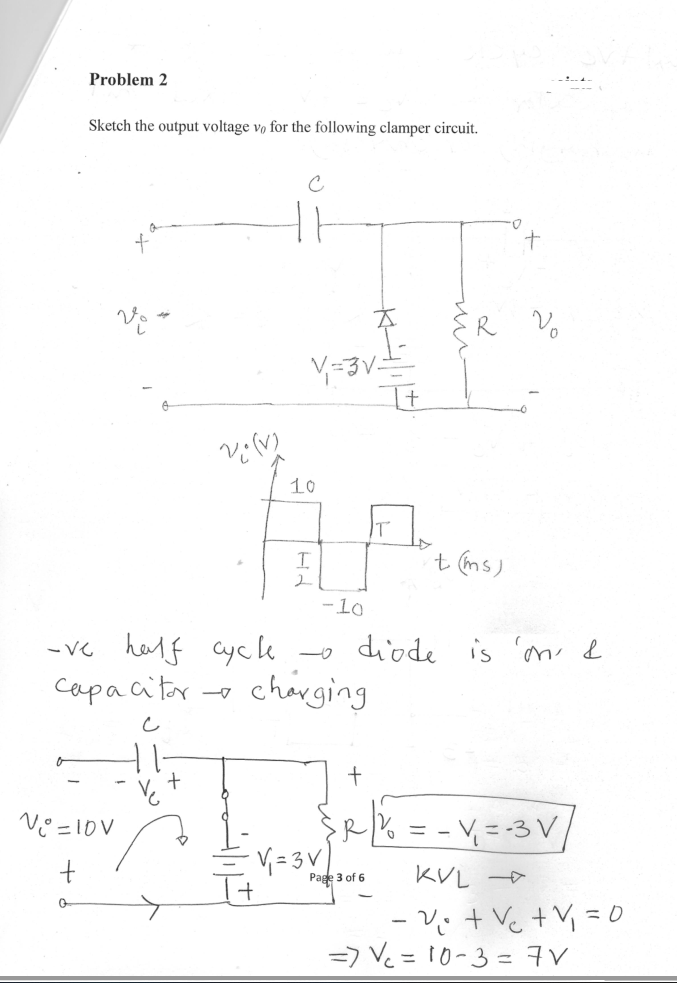 Problem 2
Sketch the output voltage v₀ for the following clamper circuit.
C
+
+
vᵢ
R
v₀
V₁=3V
-
-
+
-
vᵢ(V)
10
T
T/2
t (ms)
-10
-ve half cycle → diode is 'on' &
capacitor → charging
C
- - Vc +
+
Vᵢ=10V
R
V₀ = -V₁ = -3V
-
V₁=3V
Page 3 of 6
KVL →
+
+
-
- Vᵢ + Vc + V₁ = 0
=> Vc = 10-3 = 7V